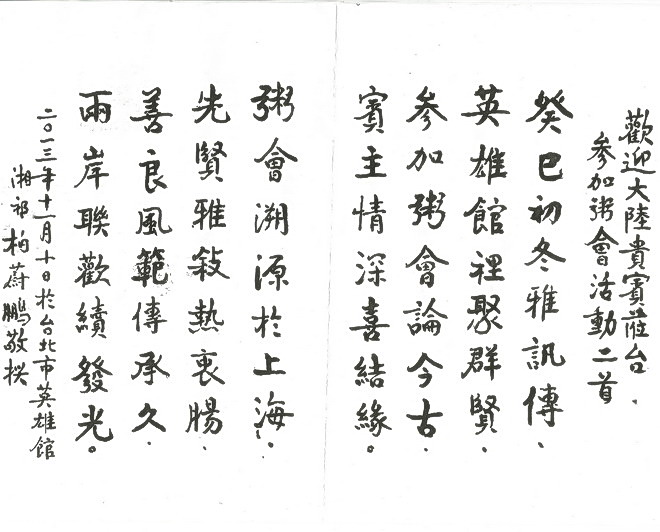 歡迎大陸貴賓蒞台、
參加粥會活動二首
癸巳初冬雅訊傳、
英雄館裡聚群賢、
參加粥會論今古、
賓主情深喜結緣。
粥會溯源於上海、
先賢雅敍熱衷腸、
善良風範傳承久、
兩岸聯歡續發光。
二〇一三年十一月十日於台北市英雄館
湘祁柏蔚鵬敬撰